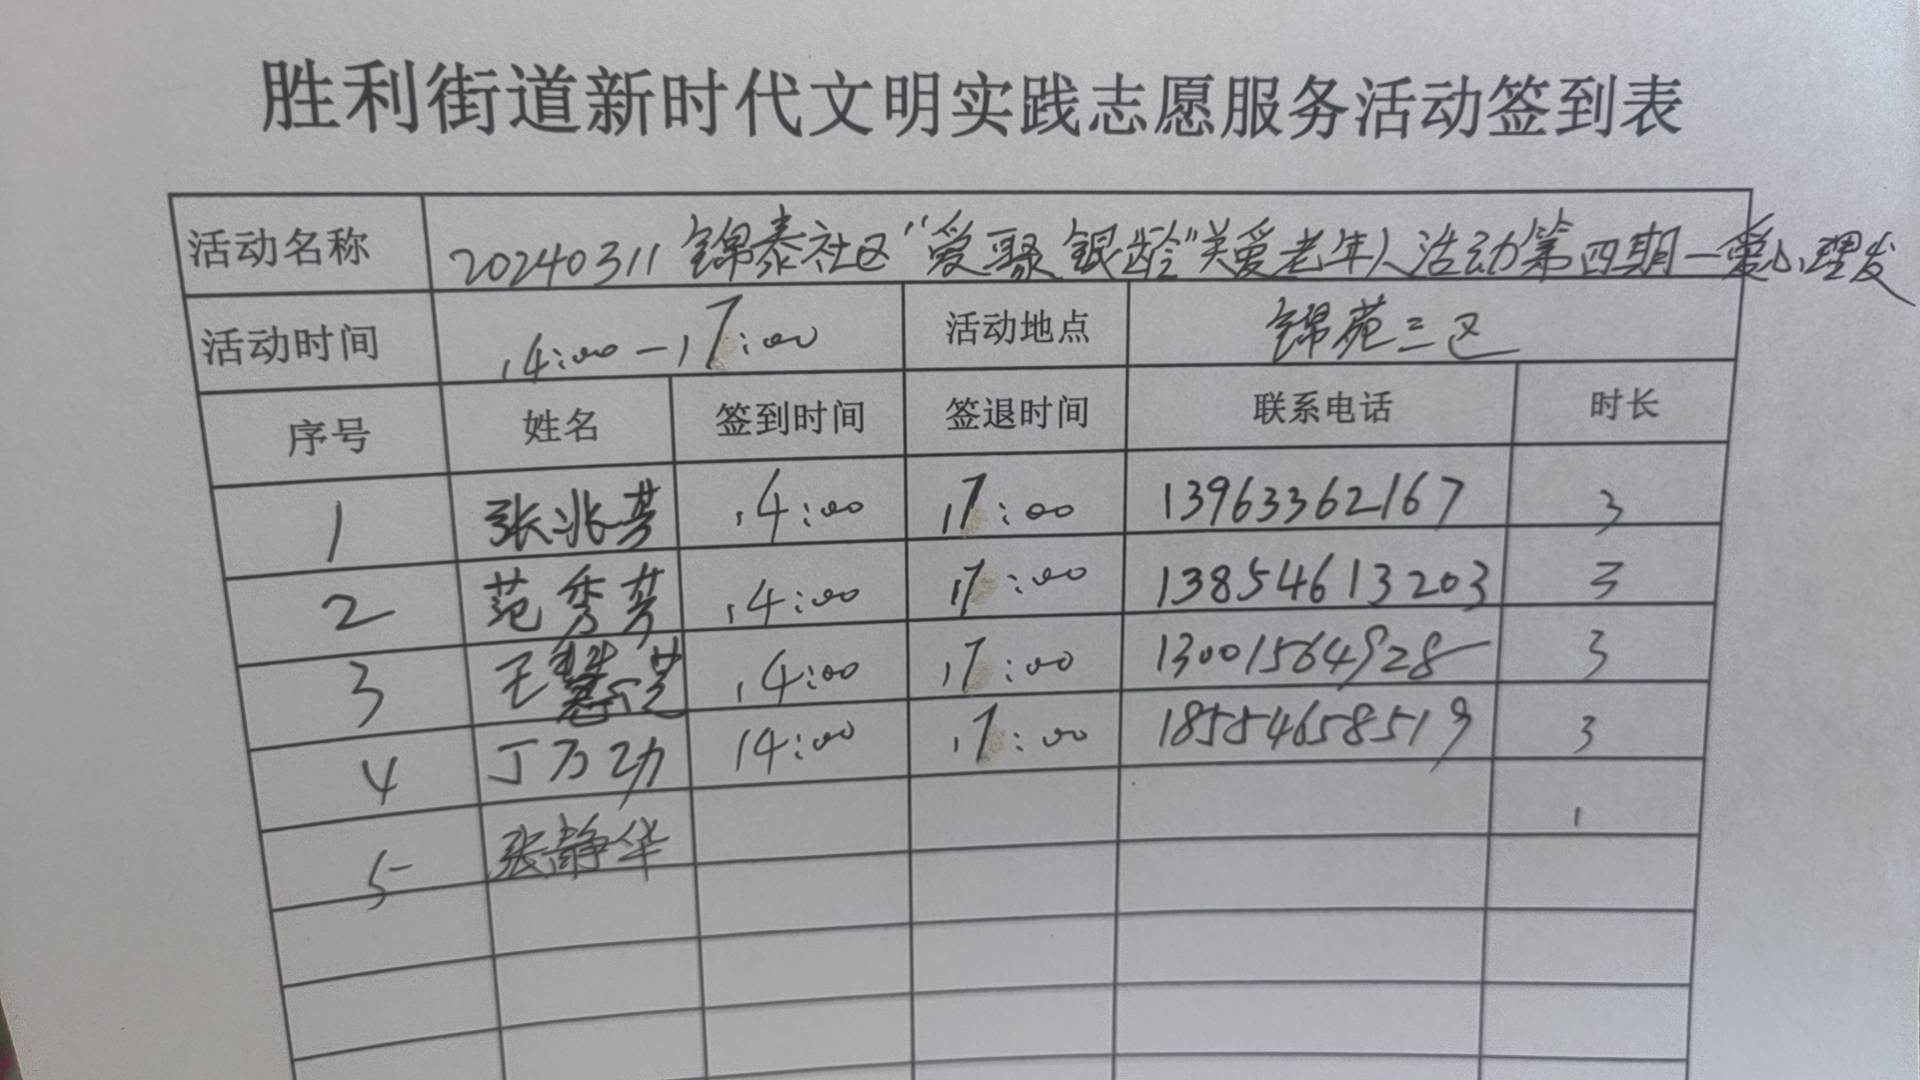 胜利街道新时代文明实践志愿服务活动签到表
活动名称 20240311 锦泰社区“爱聚银龄”关爱老年人活动第四期一爱心理发
活动时间 14:00-17:00 活动地点 锦苑三区
序号 姓名 签到时间 签退时间 联系电话 时长
1 张兆芳 14:00 17:00 13963362167 3
2 范秀芳 14:00 17:00 13854613203 3
3 王慧芝 14:00 17:00 13001564928 3
4 丁万功 14:00 17:00 18554658519 3
5 张静华